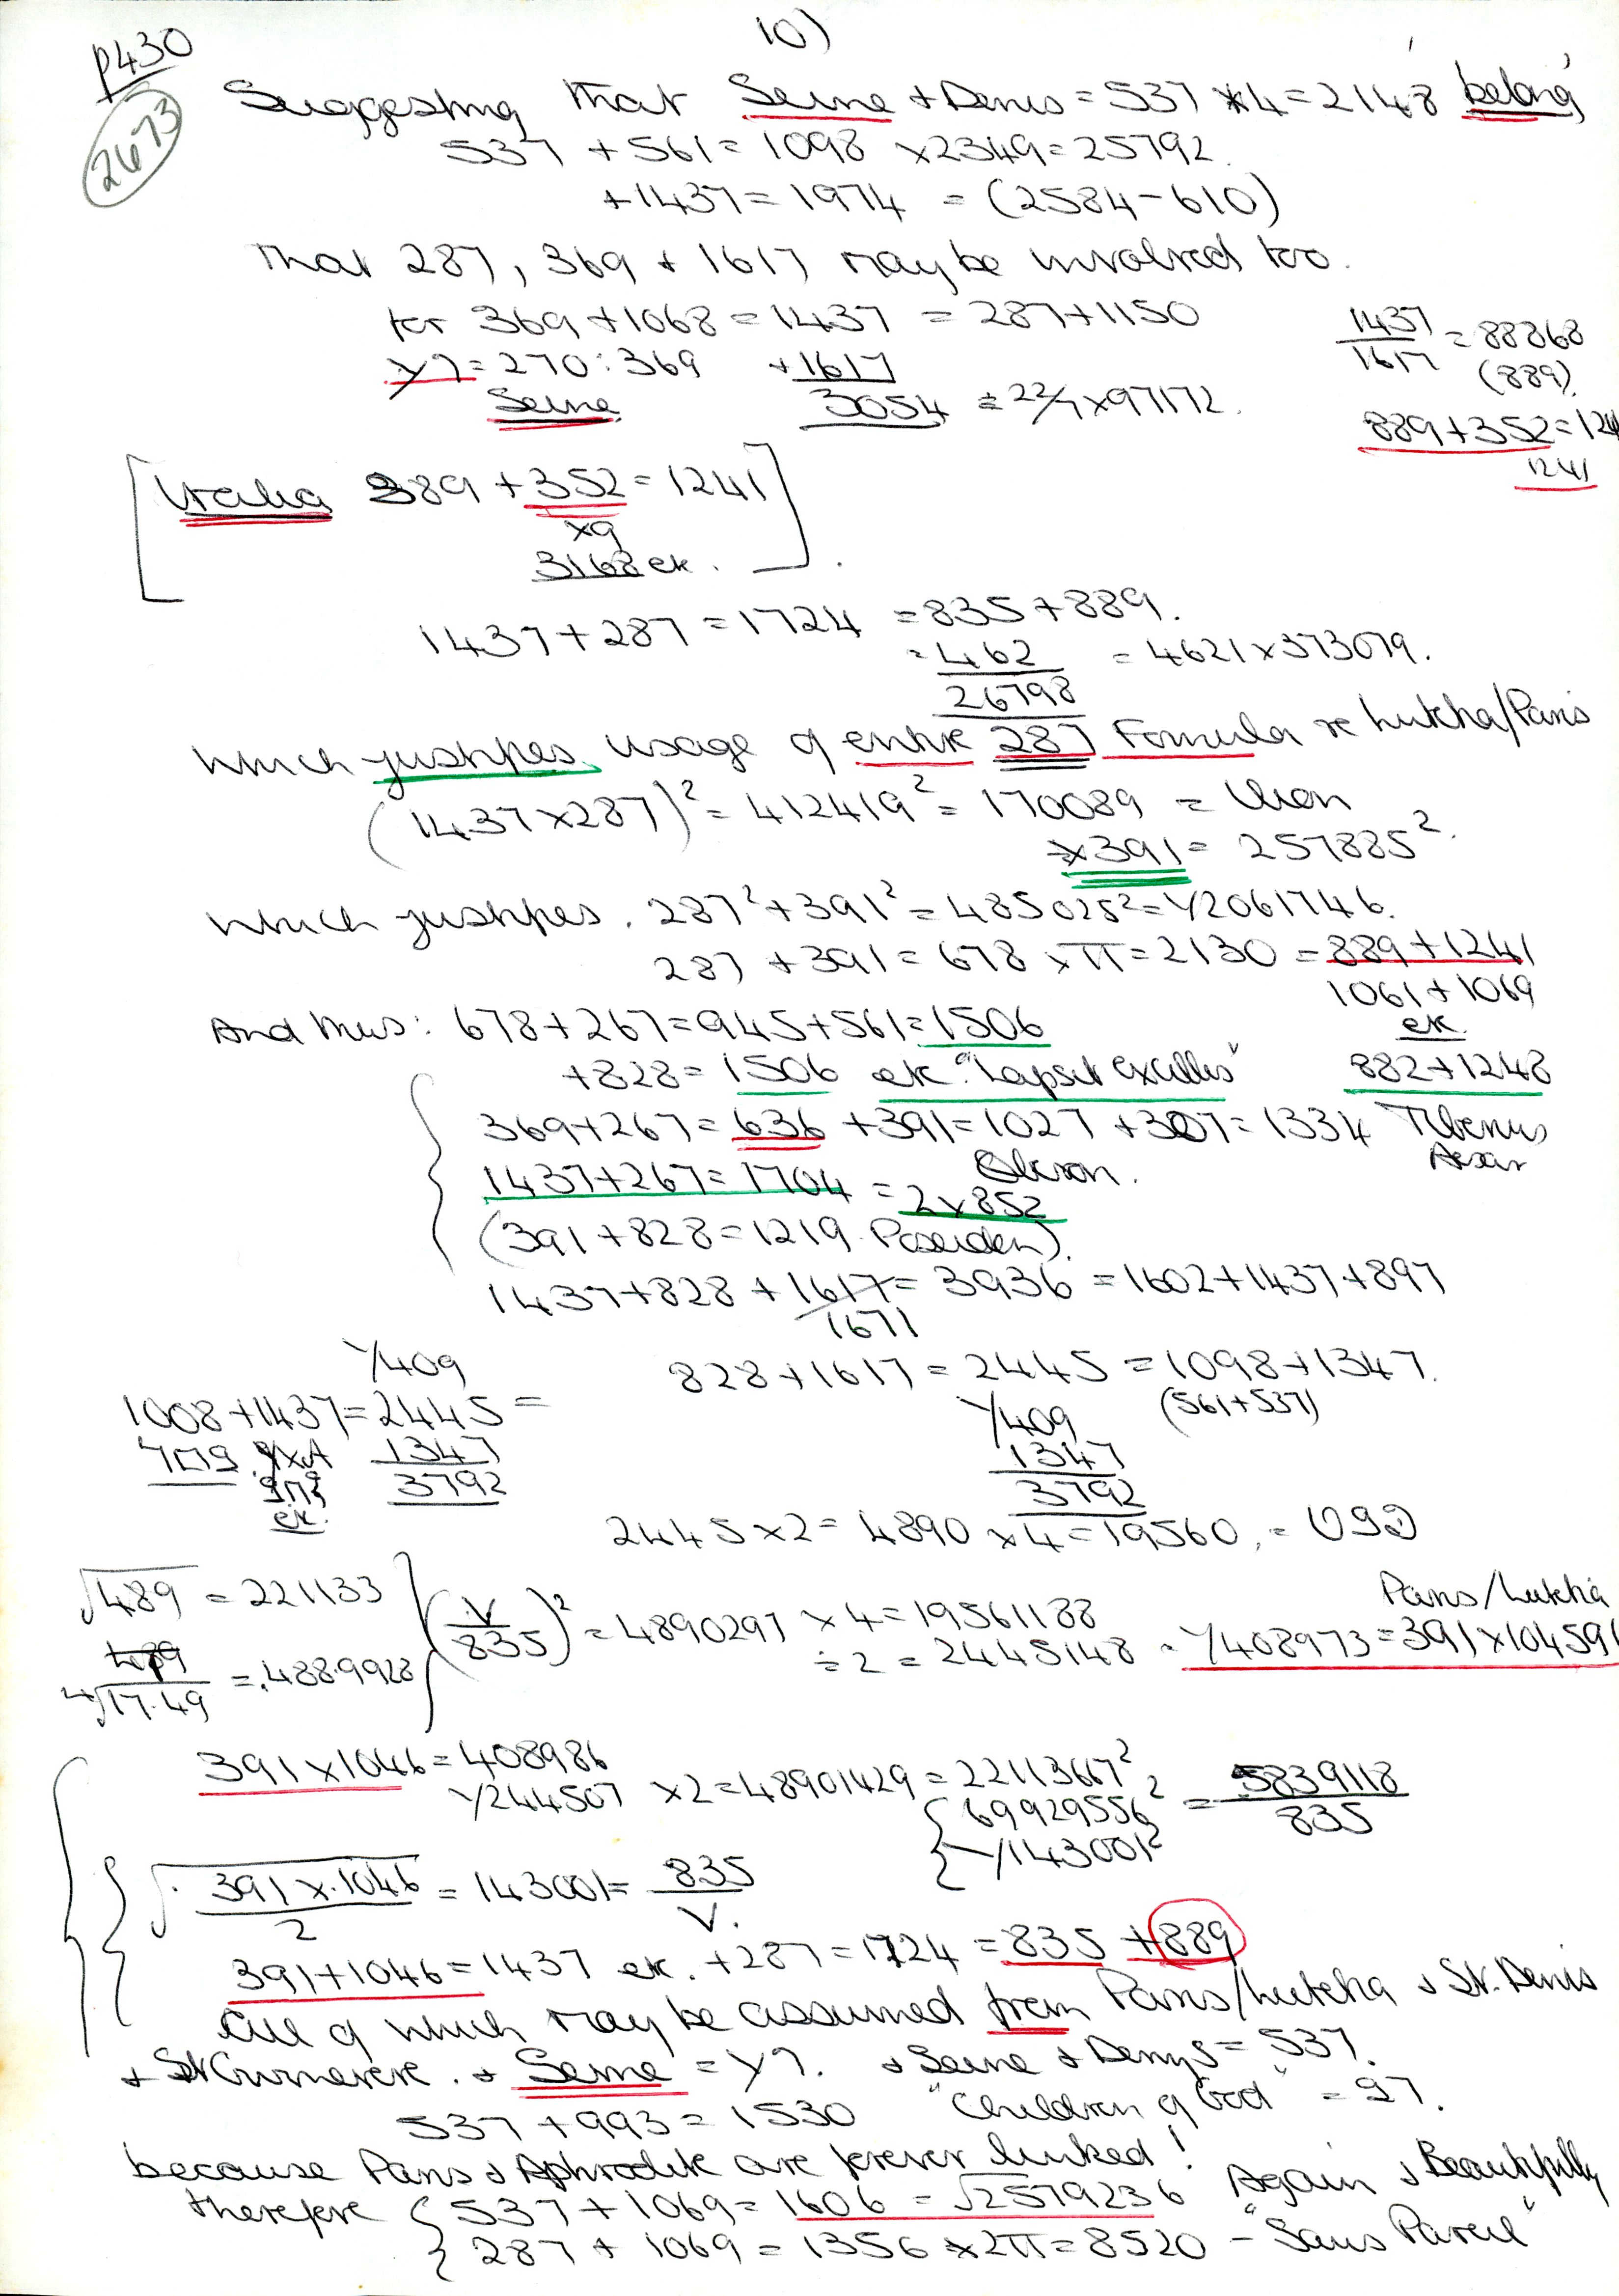 10)
p430
2673
Suggesting that Seine + Denis = 537 × 4 = 2148 belong
537 + 561 = 1098 × 2349 = 25792.
+ 1437 = 1974 = (2584 - 610)
That 287, 369 + 1617 may be involved too.
for 369 + 1068 = 1437 = 287 + 1150
y7 = 270 : 369 + 1617
Seine 3054 = 22/7 × 97172.
1437/1617 = 88868
(889)
889 + 352 = 1241
1241
[889 + 352 = 1241]
×9
3168 ek.
1437 + 287 = 1724 = 835 + 889.
= 462/26798 = 4621 × 373079.
Which justifies usage of entire 287 Formula re Lutetia/Paris
(1437 × 287)² = 412419² = 170089 =
× 391 = 257885².
Which justifies. 287² + 391² = 485025² = 1/2061746.
287 + 391 = 678 × π = 2130 = 889 + 1241
1061 + 1069
ek.
882 + 1248
And thus: 678 + 267 = 945 + 561 = 1506
+ 828 = 1506 ek "Lapsit excillis"
369 + 267 = 636 + 391 = 1027 + 307 = 1334 Tiberius
1437 + 267 = 1704 = 2 × 852
(391 + 828 = 1219 Poseidon).
1437 + 828 + 1617 = 3936 = 1602 + 1437 + 897
1671
828 + 1617 = 2445 = 1098 + 1347.
(561 + 537)
1/409
1347
3792
1/409
1008 + 1437 = 2445 =
1347
3792
ek.
2445 × 2 = 4890 × 4 = 19560. =
√489 = 221133
489/⁴√17.49 = .4889928
(V/835)² = 4890297 × 4 = 19561188
÷ 2 = 2445148 = 1/408973 = 391 × 104591
Paris/Lutetia
391 × 1046 = 408986
1/244507 × 2 = 48901429 = 22113667²
69929556²
1/143001²
= 5839118/835
√391 × .1046/2 = 143001 = 835/V.
391 + 1046 = 1437 ek. + 287 = 1724 = 835 + 889
All of which may be assumed from Paris/Lutetia + St. Denis
+ Seine = y7. + Seine + Denys = 537.
537 + 993 = 1530 "Children of God" = 97.
because Paris + Aphrodite are forever linked!
therefore 537 + 1069 = 1606 = √2579236 Again + Beautifully
287 + 1069 = 1356 × 2π = 8520 - "Sans Pareil"